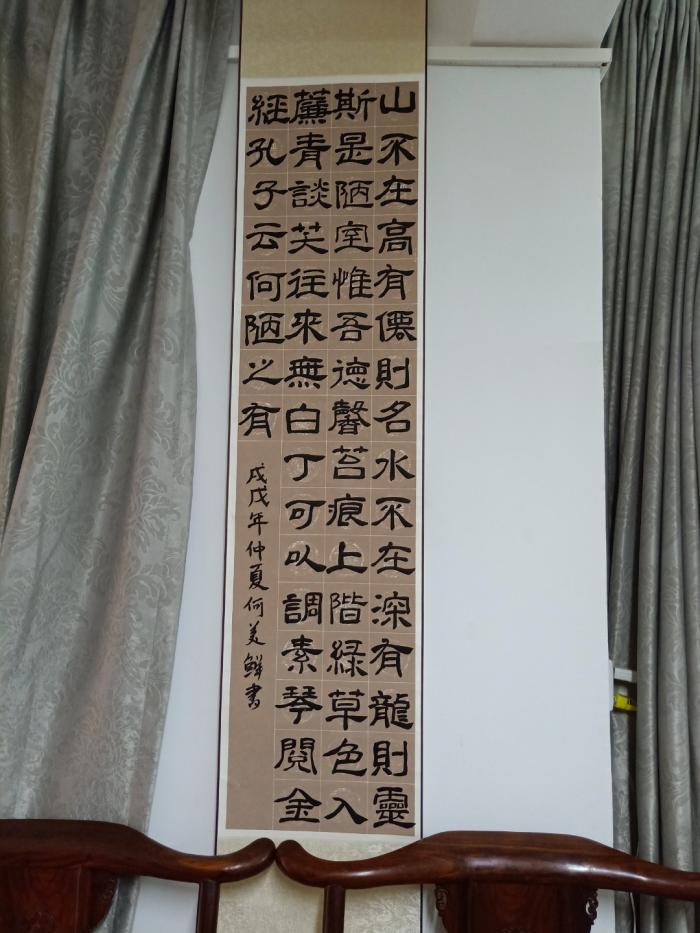 山不在高有僊則名水不在深有龍則靈
斯是陋室惟吾德馨苔痕上階緑草色入
簾青談笑往來無白丁可以調素琴閲金
經孔子云何陋之有
戊戌年仲夏何美鮮書